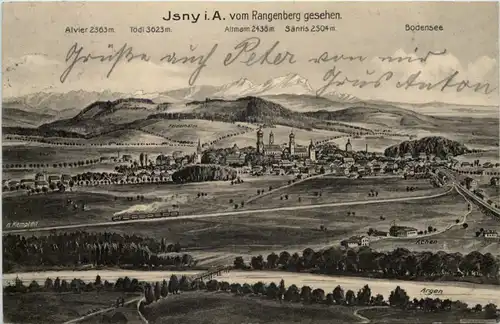 Jsny i. A. vom Rangenberg gesehen.
Alvier 2363m. Tödi 3623m. Altmann 2438m Säntis 2504m. Bodensee
Grüße auch Peter von mir
Grus Anton
n. Kempten
Achen
Argen